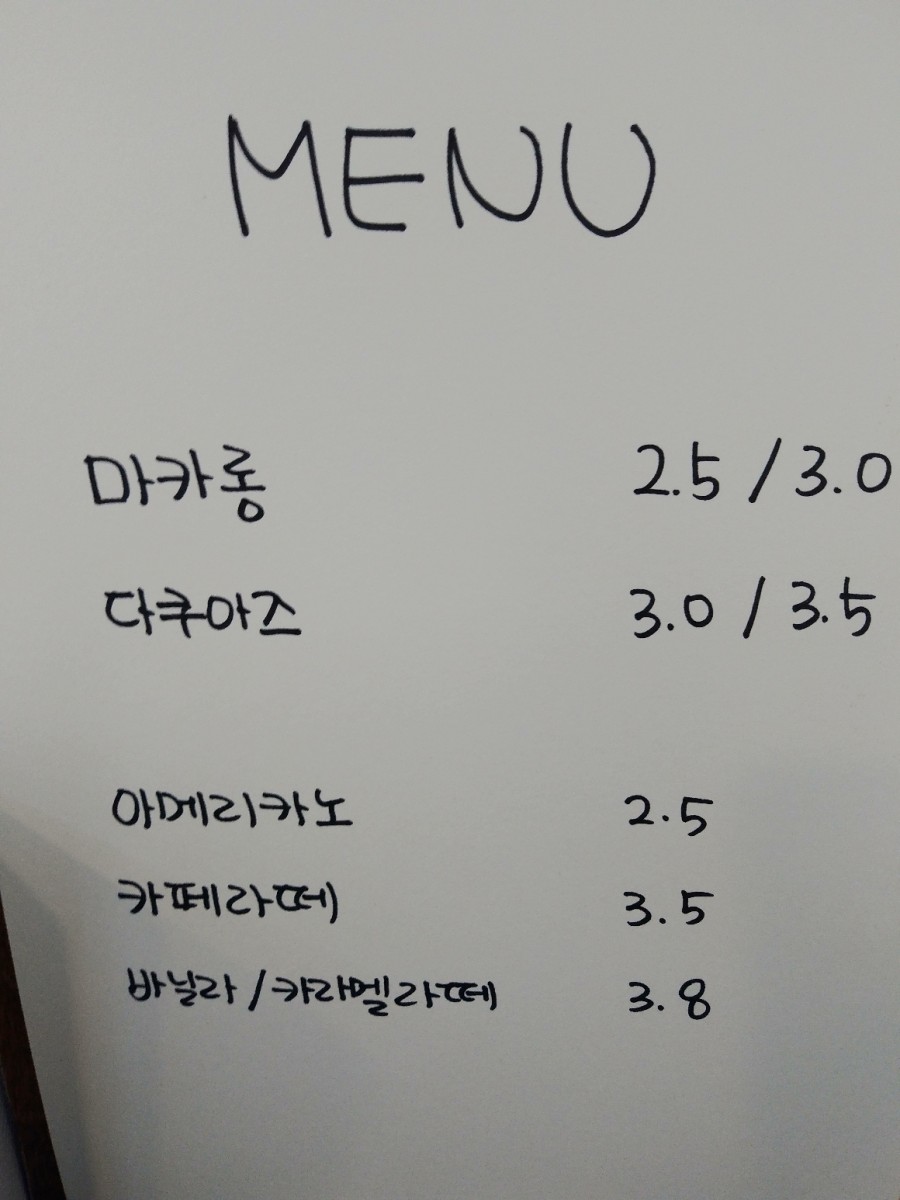 MENU
마카롱 2.5 / 3.0
다쿠아즈 3.0 / 3.5
아메리카노 2.5
카페라떼 3.5
바닐라 / 카라멜라떼 3.8